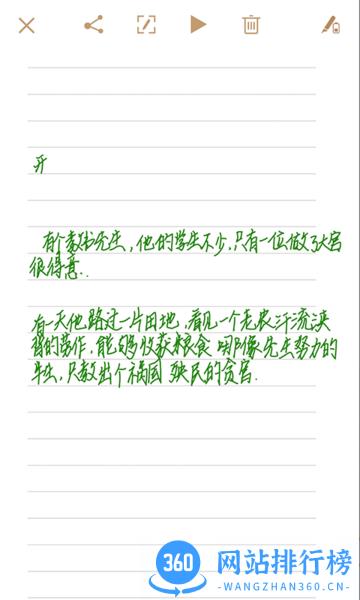 开
有个教书先生,他的学生不少,只有一位做了大官
很得意..
有一天他路过一片田地,看见一个老农汗流浃
背的劳作,能够收获粮食 哪像先生努力的
半生,只教出个祸国 殃民的贪官.
360 网站排行榜
-WANGZHAN360.COM-